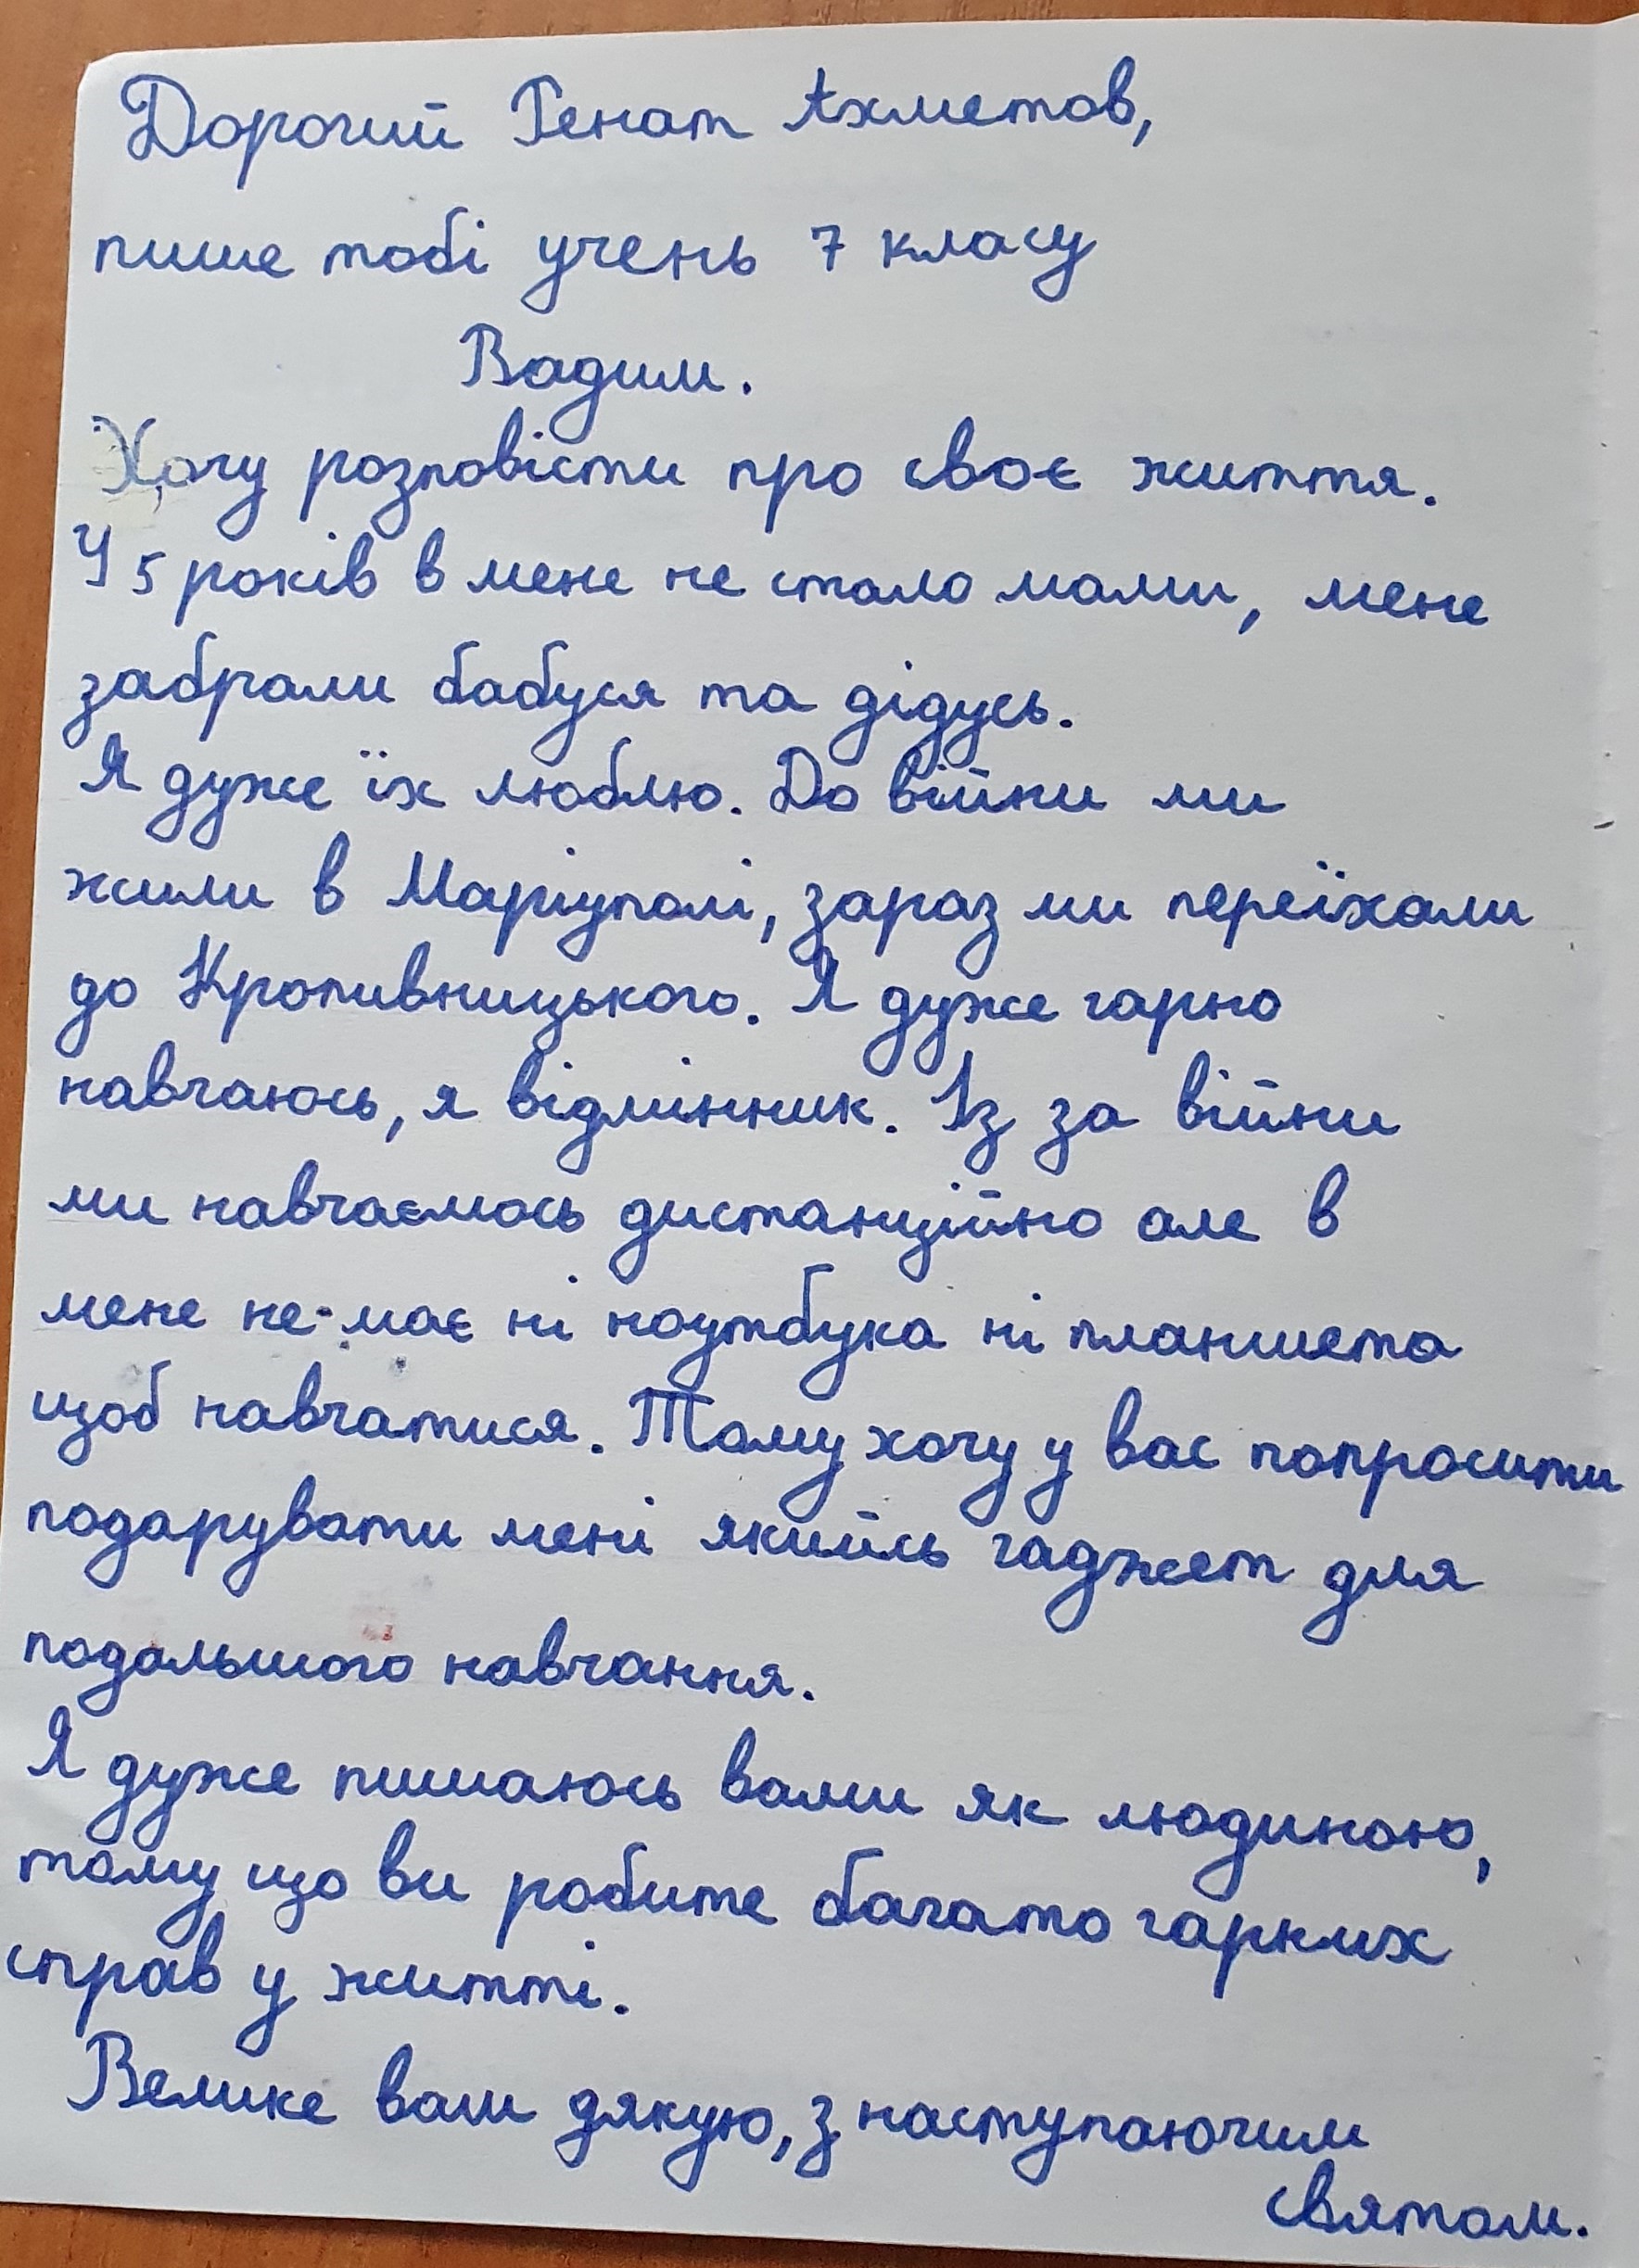 Дорогий Генат Ахметов,
пише тобі учень 7 класу
Вадим.
Хочу розповісти про своє життя.
У 5 років в мене не стало мами, мене
забрали бабуся та дідусь.
Я дуже їх люблю. До війни ми
жили в Маріуполі, зараз ми переїхали
до Кропивницького. Я дуже гарно
навчаюсь, я відмінник. Із за війни
ми навчаємось дистанційно але в
мене не-має ні ноутбука ні планшета
щоб навчатися. Тому хочу у вас попросити
подарувати мені якийсь гаджет для
подальшого навчання.
Я дуже пишаюсь вами як людиною,
тому що ви робите багато гарних
справ у житті.
Велике вам дякую, з наступаючим
святом.